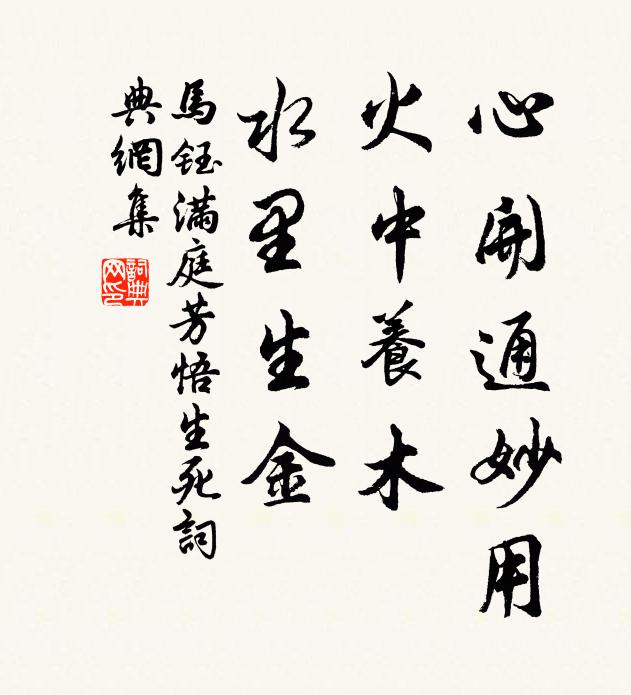 心開通妙用
火中養木
水里生金
馬鈺滿庭芳悟生死詞
典網集
詞典
网印